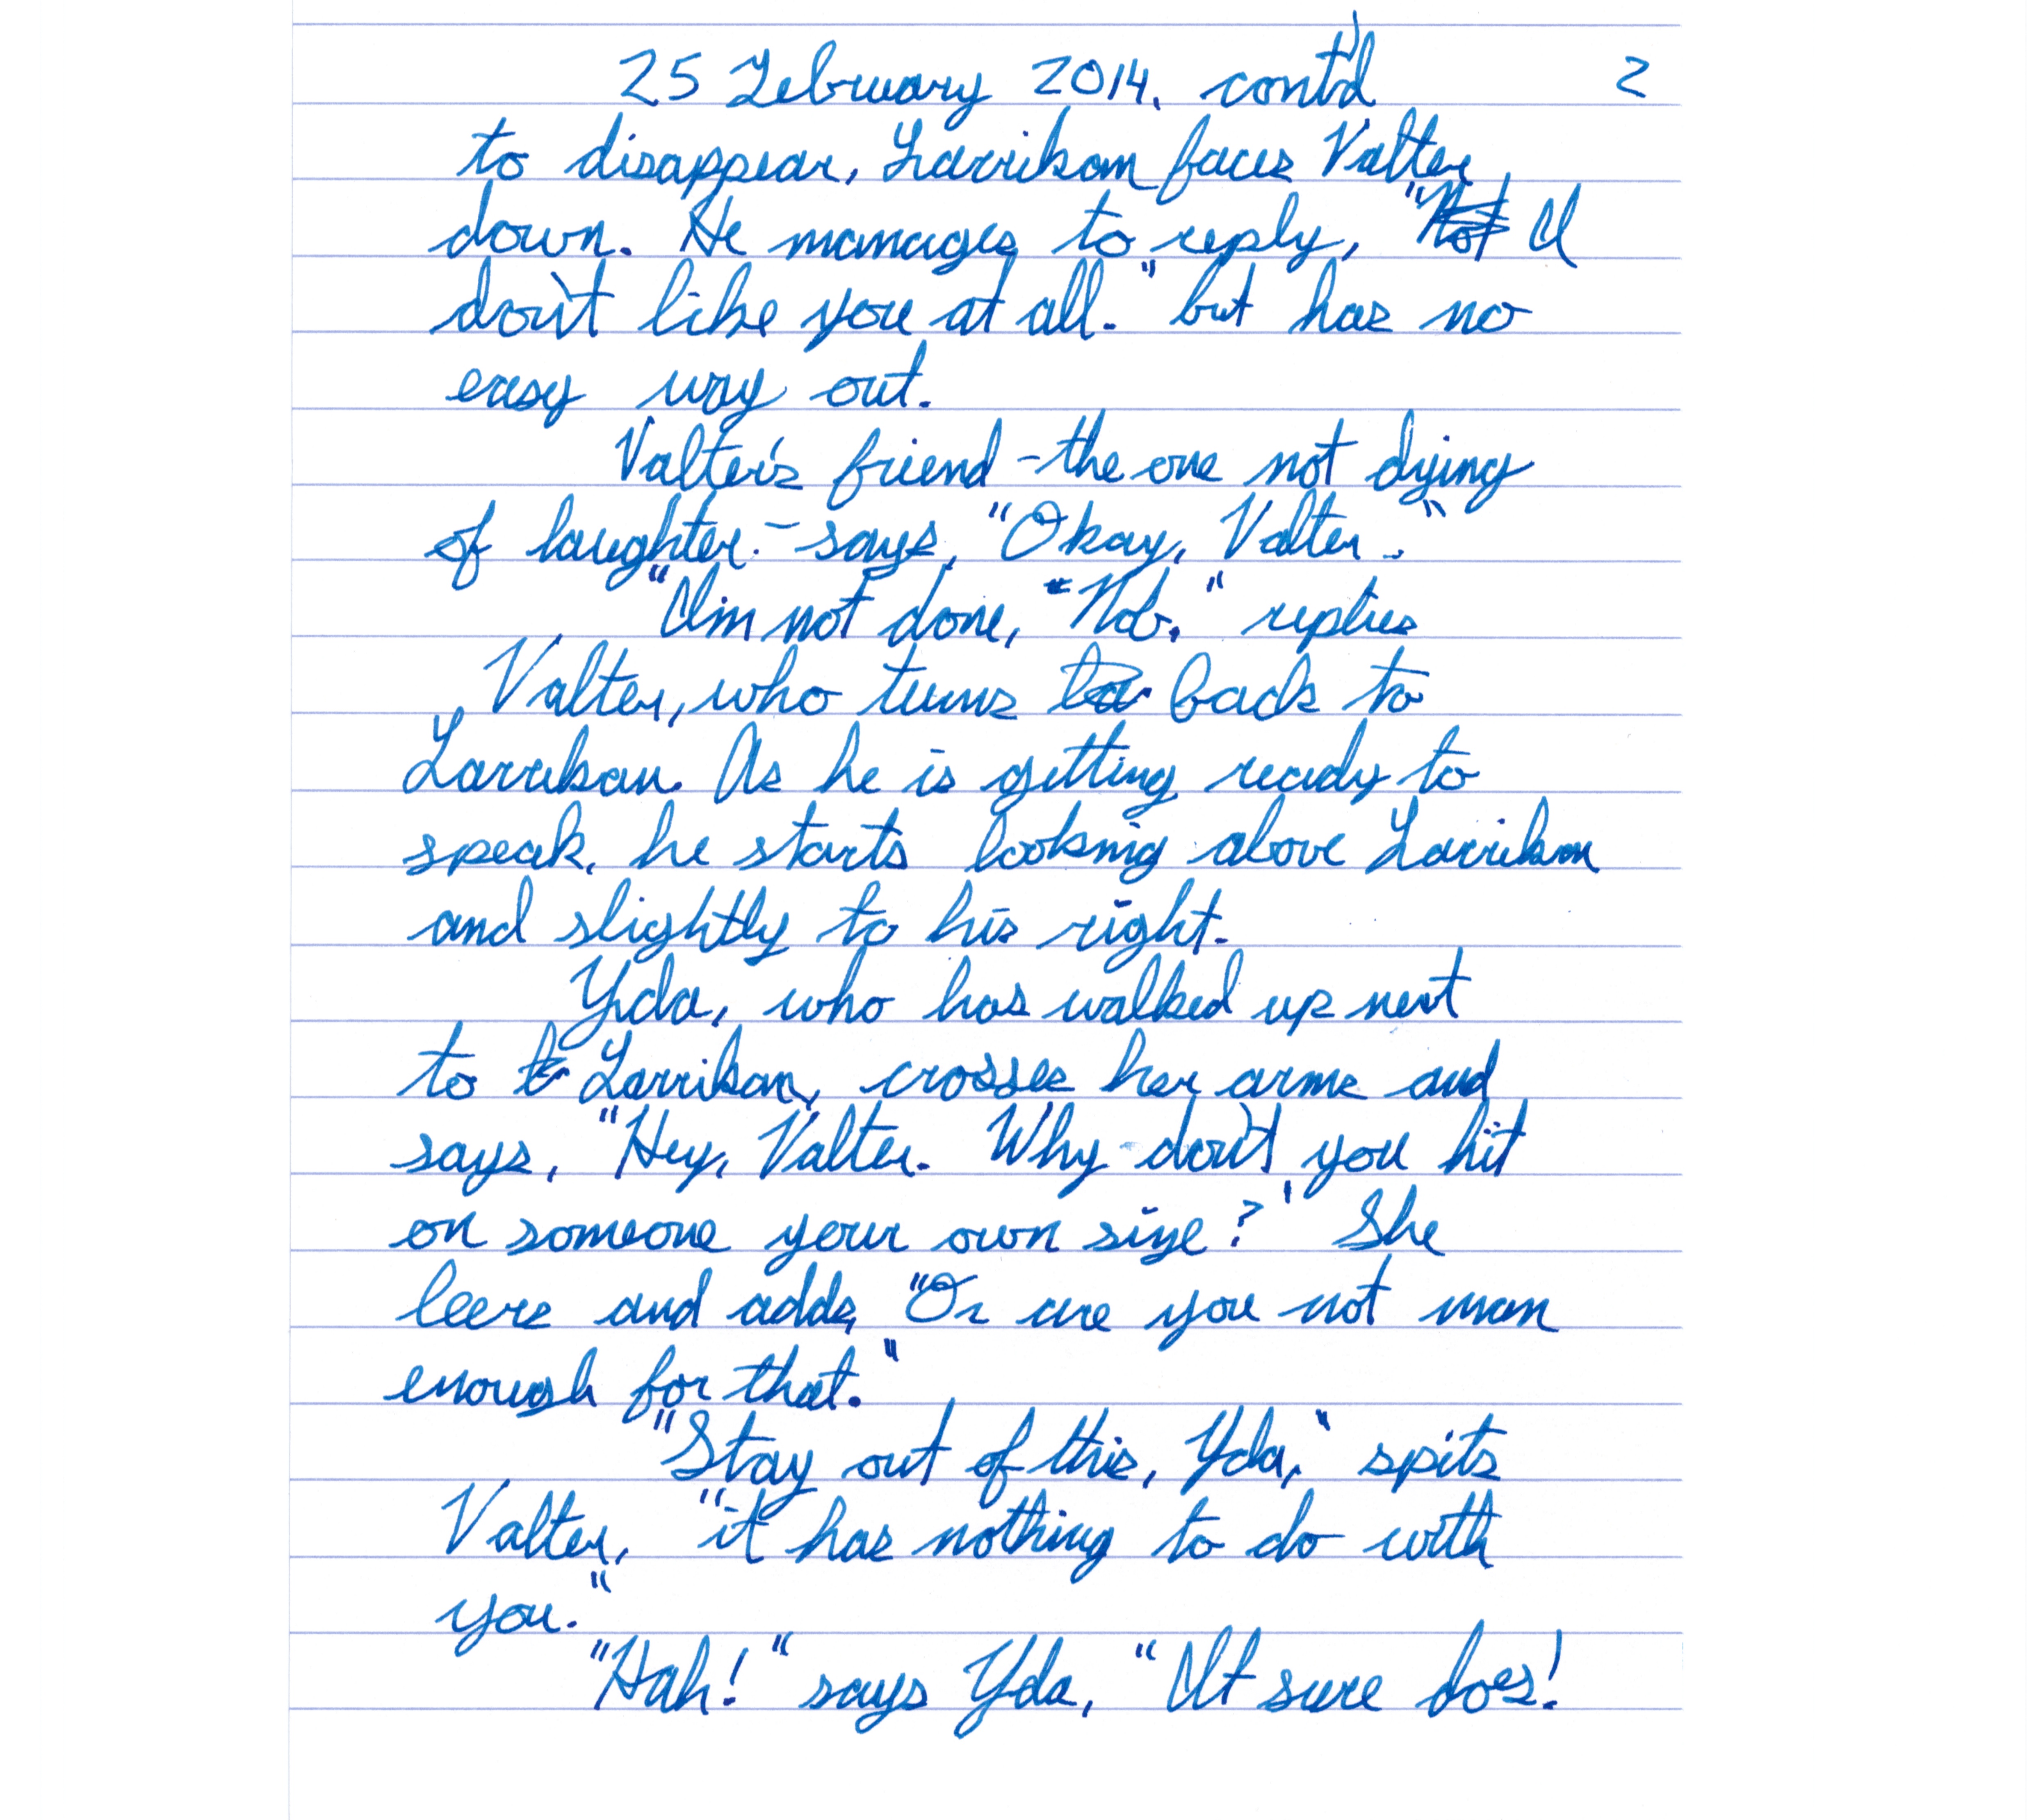 25 February 2014. cont'd 2
to disappear, Larrikan faces Valter
down. He manages to reply, "Not I
don't like you at all." but has no
easy way out.
Valter's friend - the one not dying
of laughter. - says, "Okay, Valter."
"I'm not done, Nob." replies
Valter, who turns to back to
Larrikan. As he is getting ready to
speak, he starts looking above Larrikan
and slightly to his right.
Yda, who has walked up next
to t Larrikan, crosses her arms and
says, "Hey, Valter. Why don't you hit
on someone your own size?' She
leers and adds, "Or are you not man
enough for that."
"Stay out of this, Yda," spits
Valter, "it has nothing to do with
you."
"Hah!" says Yda, "It sure does!